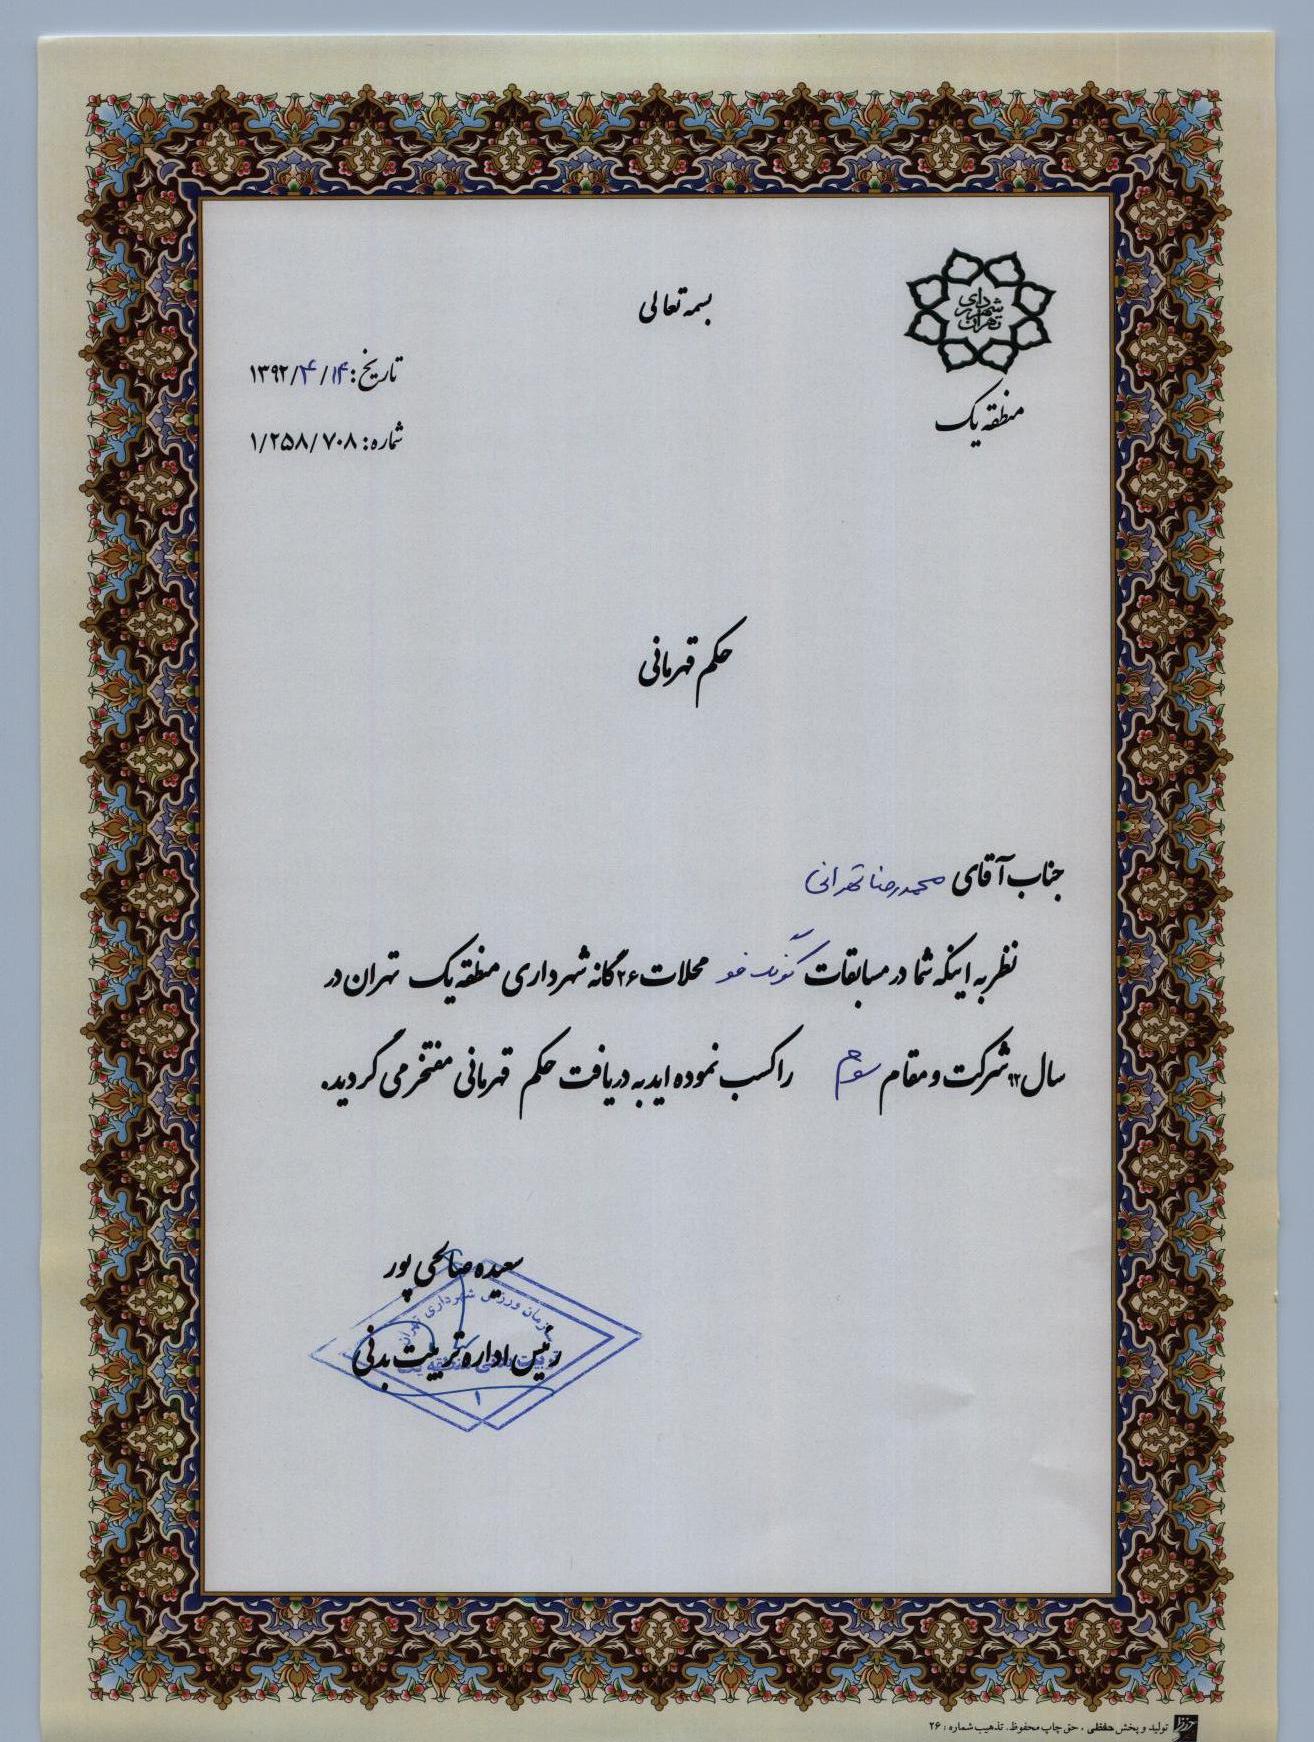 بسمه تعالی
شهرداری تهران
منطقه یک
تاریخ: ۱۳۹۲/۴/۱۴
شماره: ۱/۲۵۸/۷۰۸
حکم قهرمانی
جناب آقای محمدرضا تهرانی
نظر به اینکه شما در مسابقات محلات ۲۶ گانه شهرداری منطقه یک تهران در
سال ۹۲ شرکت و مقام سوم را کسب نموده اید به دریافت حکم قهرمانی مفتخر می گردید.
سعیده صالحی پور
سازمان ورزش شهرداری تهران
رئیس اداره تربیت بدنی
۱
تولید و پخش حفظی . حق چاپ محفوظ. تذهیب شماره : ۲۶